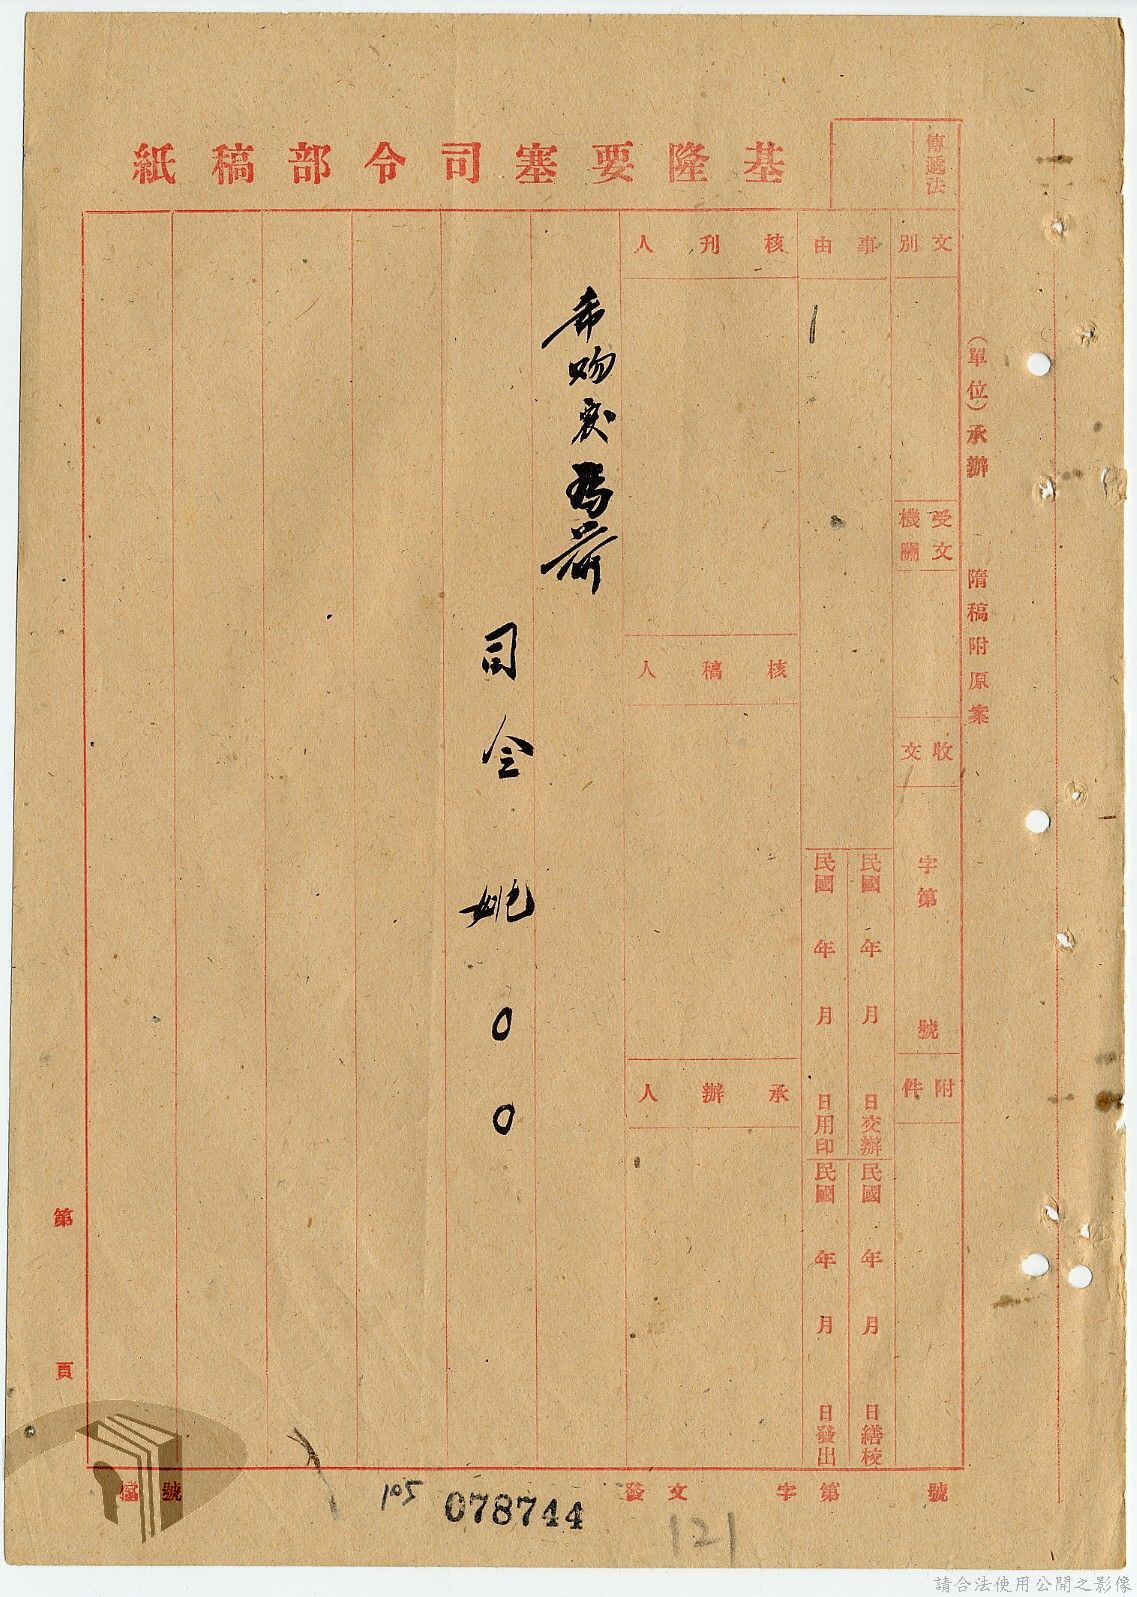 基隆要塞司令部稿紙
傳遞法
(單位)承辦
隋稿附原案
文別
受文機關
收文
字第
號
附件
事由
民國 年 月 日交辦
民國 年 月 日繕校
民國 年 月 日用印
民國 年 月 日發出
核刊人
核稿人
承辦人
希
為荷
司令 姚○○
第 頁
檔 號
105
078744
發文 字第 號
121
請合法使用公開之影像